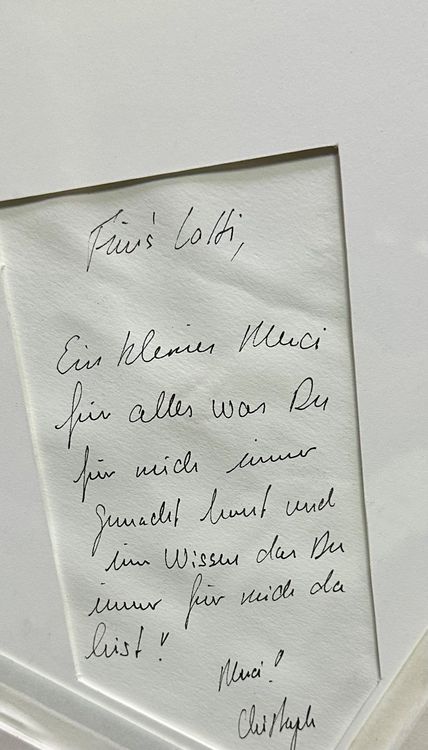 Für's Lotti,
Ein kleines Merci
für alles was Du
für mich immer
gemacht hast und
im Wissen das Du
immer für mich da
bist!
Merci!
Christoph